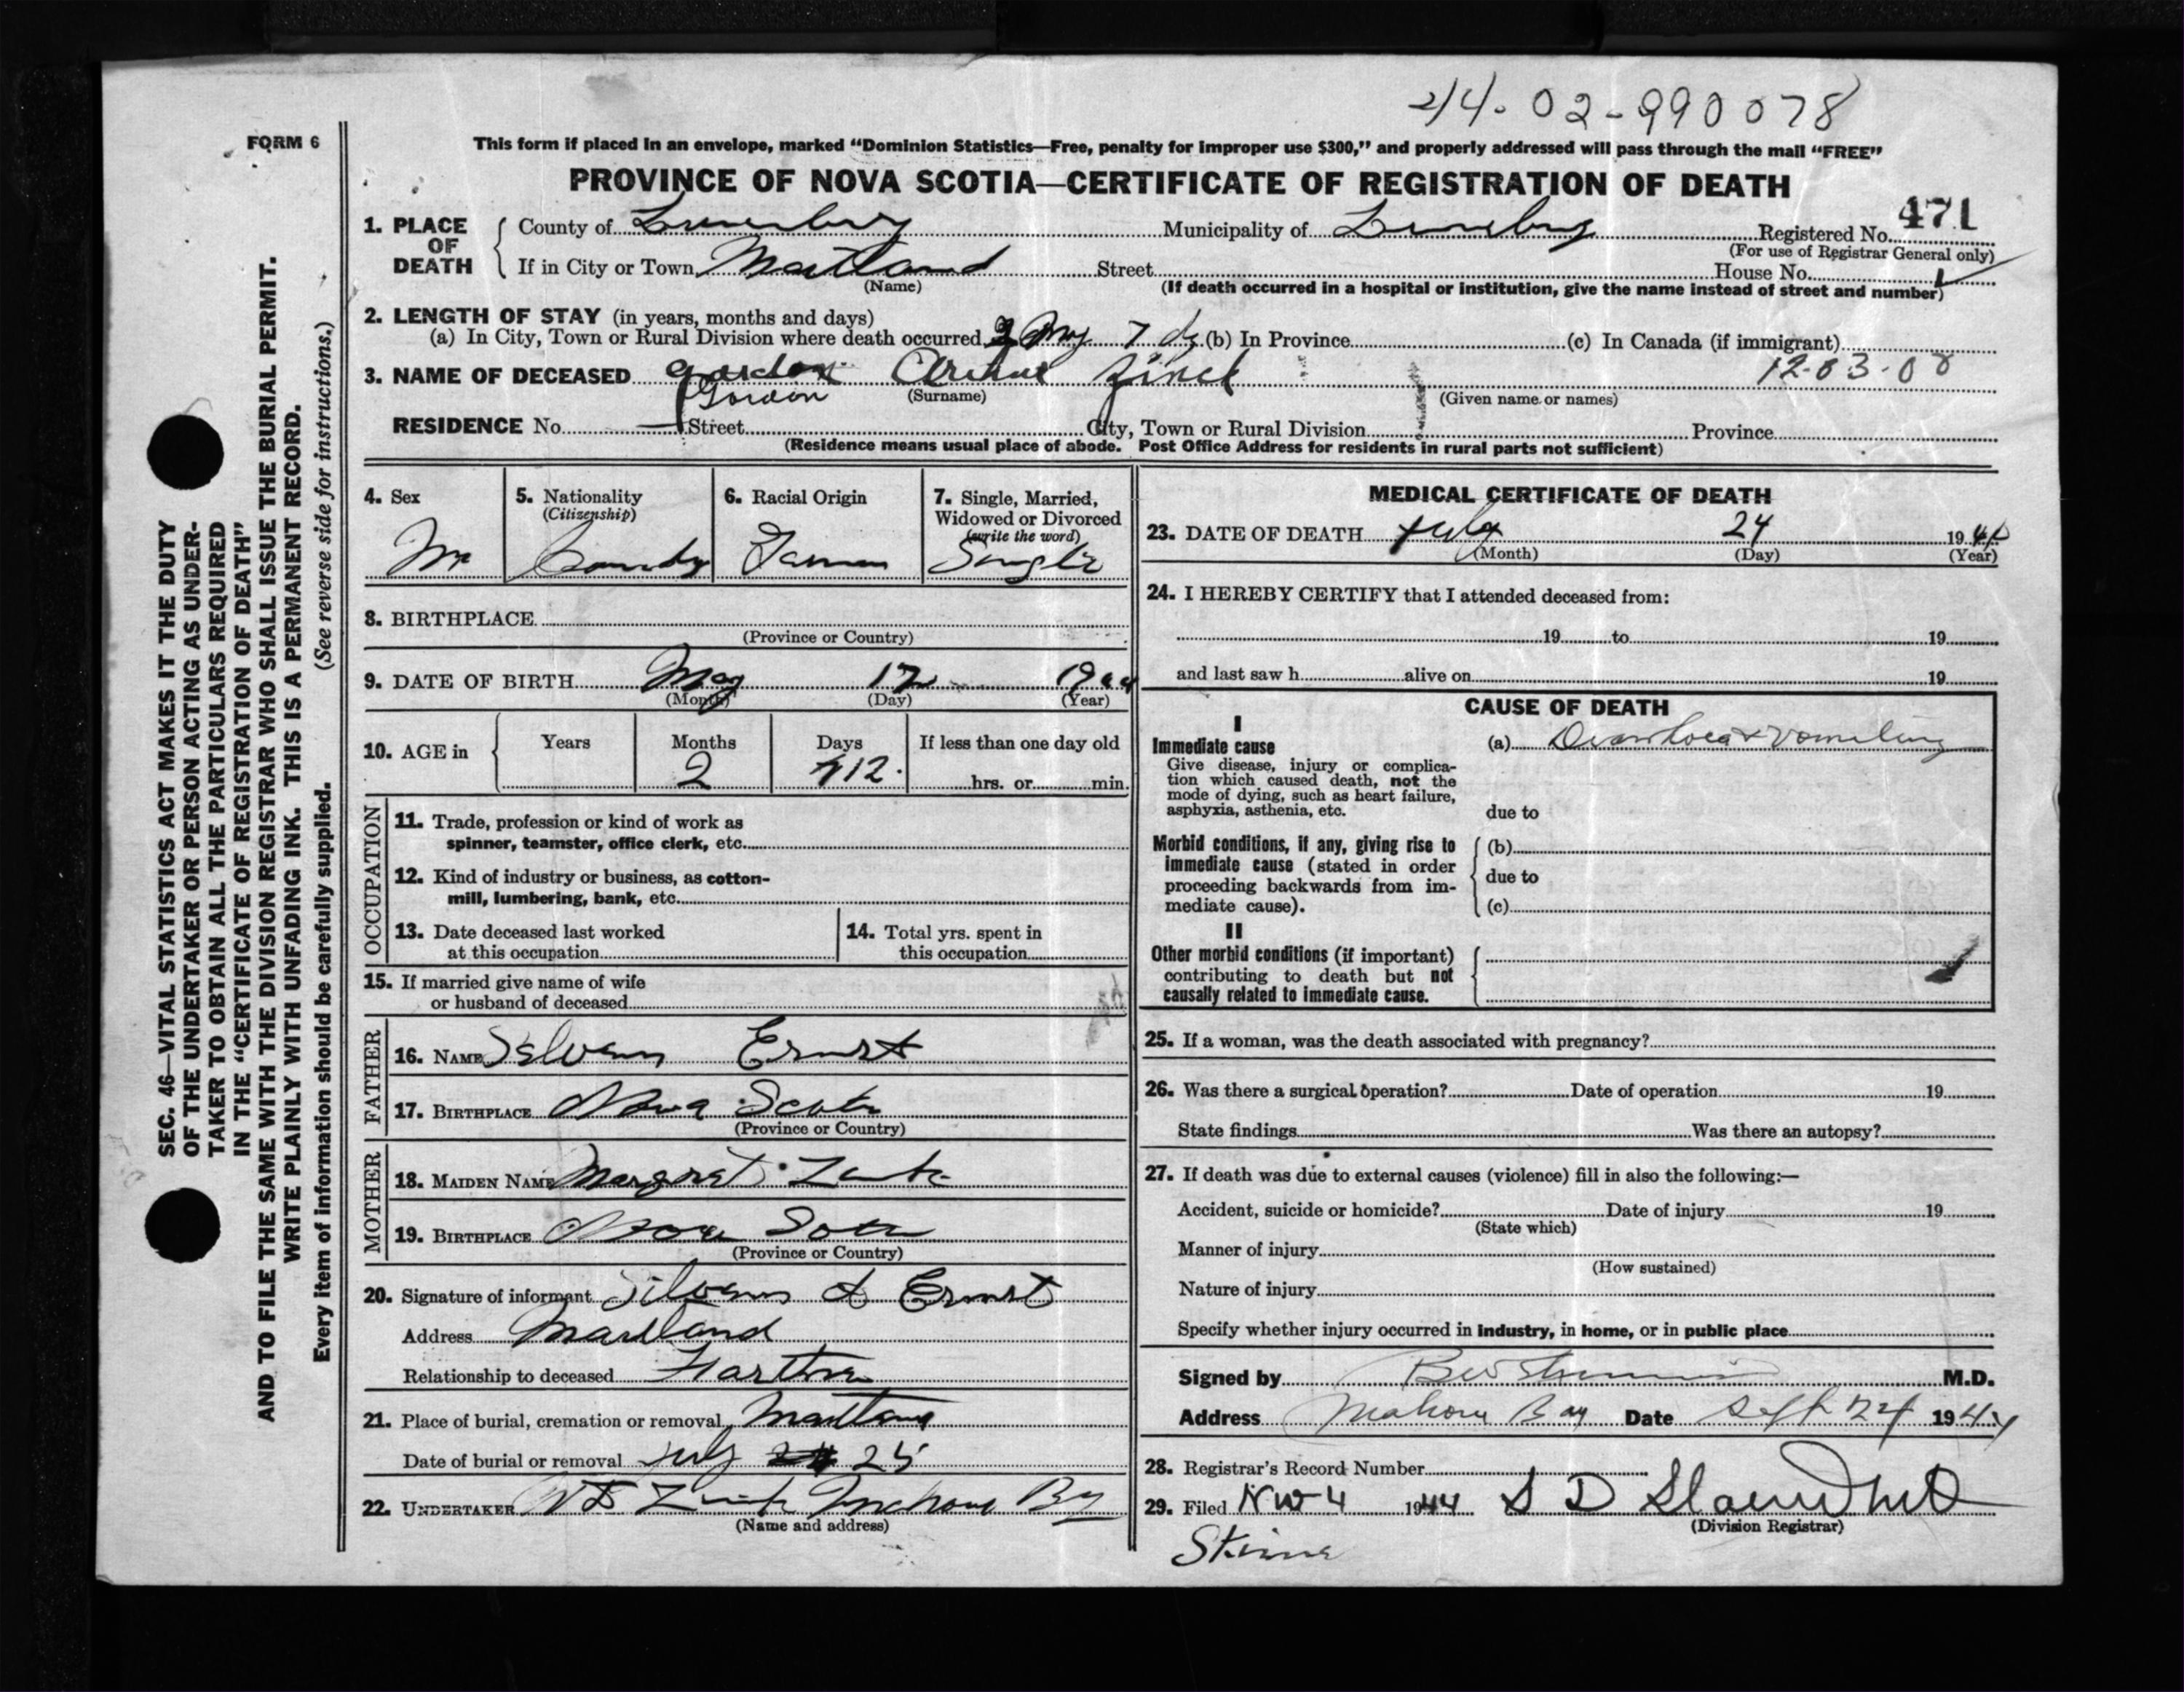 44-02-990078
FORM 6
This form if placed in an envelope, marked “Dominion Statistics—Free, penalty for improper use $300,” and properly addressed will pass through the mail “FREE”
PROVINCE OF NOVA SCOTIA—CERTIFICATE OF REGISTRATION OF DEATH
471
1. PLACE OF DEATH
County of Lunenburg Municipality of Lunenburg Registered No.
(For use of Registrar General only)
If in City or Town Maitland Street House No.
(Name) (If death occurred in a hospital or institution, give the name instead of street and number)
2. LENGTH OF STAY (in years, months and days)
(a) In City, Town or Rural Division where death occurred 7 (b) In Province (c) In Canada (if immigrant)
3. NAME OF DECEASED Gordon Zinck
Gordon (Surname) (Given name or names)
RESIDENCE No. Street City, Town or Rural Division Province
(Residence means usual place of abode. Post Office Address for residents in rural parts not sufficient)
4. Sex
M
5. Nationality
(Citizenship)
6. Racial Origin
7. Single, Married,
Widowed or Divorced
(write the word)
Single
8. BIRTHPLACE
(Province or Country)
9. DATE OF BIRTH May 12 1944
(Month) (Day) (Year)
10. AGE in Years Months Days If less than one day old
2 12 hrs. or min.
OCCUPATION
11. Trade, profession or kind of work as
spinner, teamster, office clerk, etc.
12. Kind of industry or business, as cotton-
mill, lumbering, bank, etc.
13. Date deceased last worked
at this occupation
14. Total yrs. spent in
this occupation
15. If married give name of wife
or husband of deceased
FATHER
16. NAME Ernst
17. BIRTHPLACE Nova Scotia
(Province or Country)
MOTHER
18. MAIDEN NAME Margret
19. BIRTHPLACE Nova
(Province or Country)
20. Signature of informant Ernst
Address Maitland
Relationship to deceased Farther
21. Place of burial, cremation or removal Maitland
Date of burial or removal July 25
22. UNDERTAKER Mahone Bay
(Name and address)
MEDICAL CERTIFICATE OF DEATH
23. DATE OF DEATH July 24 1944
(Month) (Day) (Year)
24. I HEREBY CERTIFY that I attended deceased from:
19 to 19
and last saw h alive on 19
CAUSE OF DEATH
I
Immediate cause
Give disease, injury or complica-
tion which caused death, not the
mode of dying, such as heart failure,
asphyxia, asthenia, etc.
(a) Diarrhoea & vomiting
due to
Morbid conditions, if any, giving rise to
immediate cause (stated in order
proceeding backwards from im-
mediate cause).
(b)
due to
(c)
II
Other morbid conditions (if important)
contributing to death but not
causally related to immediate cause.
25. If a woman, was the death associated with pregnancy?
26. Was there a surgical operation? Date of operation 19
State findings Was there an autopsy?
27. If death was due to external causes (violence) fill in also the following:—
Accident, suicide or homicide? Date of injury 19
(State which)
Manner of injury
(How sustained)
Nature of injury
Specify whether injury occurred in industry, in home, or in public place
Signed by M.D.
Address Mahone Bay Date Sept 24 1944
28. Registrar's Record Number
29. Filed Nov 4 1944 S D
(Division Registrar)
SEC. 46—VITAL STATISTICS ACT MAKES IT THE DUTY
OF THE UNDERTAKER OR PERSON ACTING AS UNDER-
TAKER TO OBTAIN ALL THE PARTICULARS REQUIRED
IN THE “CERTIFICATE OF REGISTRATION OF DEATH”
AND TO FILE THE SAME WITH THE DIVISION REGISTRAR WHO SHALL ISSUE THE BURIAL PERMIT.
WRITE PLAINLY WITH UNFADING INK. THIS IS A PERMANENT RECORD.
Every item of information should be carefully supplied. (See reverse side for instructions.)